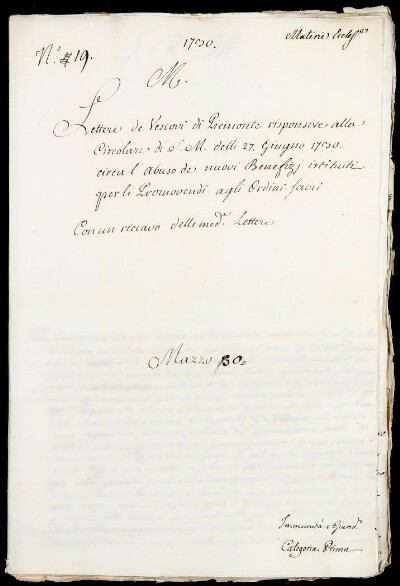 1730.
Materie Eccles.
N.º 19.
M.
Lettere de Vescovi di Piemonte risponsive alla
Circolare di S. M. delli 27. Giugno 1730.
circa l'abuso de nuovi Benefizj istituiti
per li Promovendi agli Ordini sacri
Con un ricavo delle med.e Lettere
Mazzo 30=
Immunità e Giurid.e
Categoria Prima